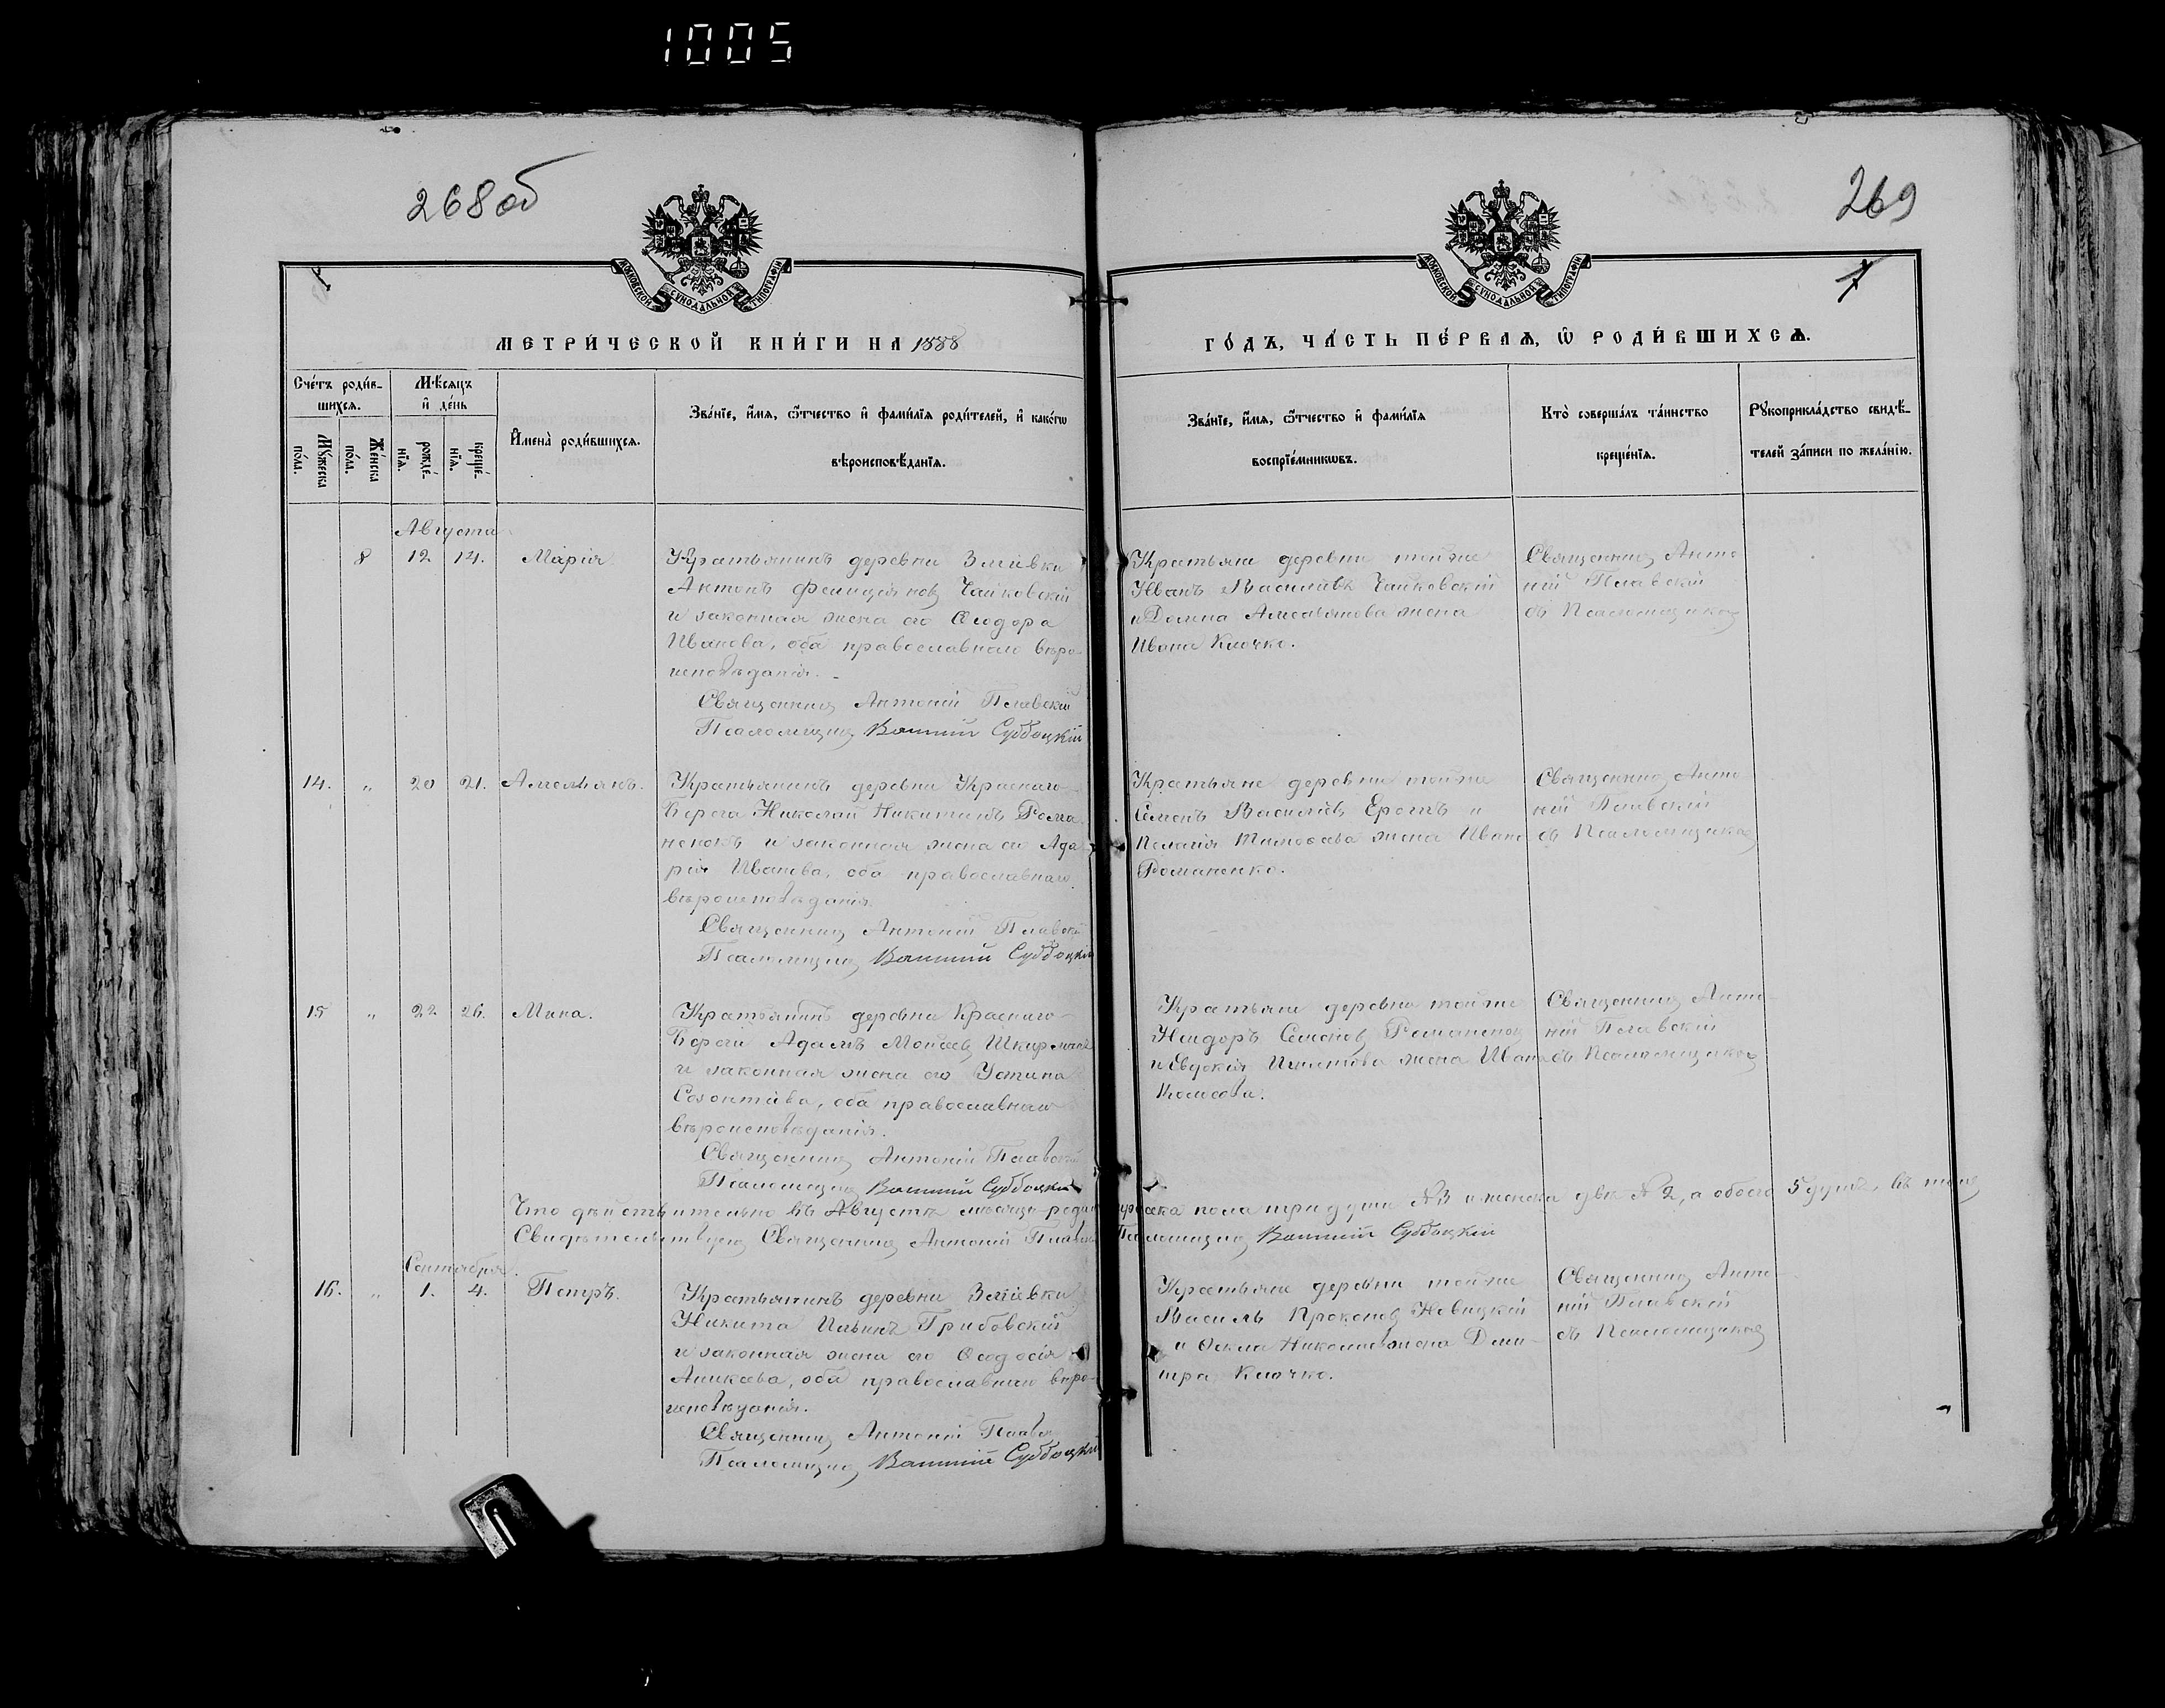 1005
268 об
269
7
МОСКОВСКОЙ СѴНОДАЛЬНОЙ ТИПОГРАФІИ
МОСКОВСКОЙ СѴНОДАЛЬНОЙ ТИПОГРАФІИ
МЕТРИ́ЧЕСКОЙ КНИ́ГИ НА 1888
ГО́ДЪ, ЧА́СТЬ ПЕ́РВАѦ, Ѡ҆ РОДИ́ВШИХСѦ.
Сче́тъ роди́в-
шихсѧ.
Мꙋ́жеска по́ла.
Же́нска по́ла.
Мѣ́сѧцъ
и҆ де́нь
рожде́-нїѧ.
креще́-нїѧ.
И҆мена̀ роди́вшихсѧ.
Зва́нїе, и҆́мѧ, ѻ҆́тчество и҆ фами́лїѧ роди́телей, и҆ како́гѡ
вѣроисповѣ́данїѧ.
Зва́нїе, и҆́мѧ, ѻ҆́тчество и҆ фами́лїѧ
воспрїе́мникѡвъ.
Кто̀ соверша́лъ та́инство
креще́нїѧ.
Рꙋкоприкла́дство свидѣ́-
телей за́писи по жела́нїю.
Августа
8 12 14. Марія.
Крестьянинъ деревни Зміевки
Антонъ Фелиціяновъ Чайковскій
и законная жена его Ѳеодора
Иванова, оба православнаго вѣро-
исповѣданія.
Священникъ Антоній Плавскій
Псаломщикъ Субботскій
Крестьяне деревни тойже
Иванъ Васильевъ Чайковскій
и Домна Амельянова жена
Ивана Клочко.
Священникъ Анто-
ній Плавскій
съ Псаломщикомъ
14. „ 20 21. Амельянъ.
Крестьянинъ деревни Краснаго-
Берега Николай Никитинъ Рома-
ненокъ и законная жена его Ада-
рія Иванова, оба православнаго
вѣроисповѣданія.
Священникъ Антоній Плавскій
Псаломщикъ Субботскій
Крестьяне деревни тойже
Семенъ Васильевъ и
Пелагія жена Ивана
Романенко.
Священникъ Анто-
ній Плавскій
съ Псаломщикомъ
15 „ 22 26. Мина.
Крестьянинъ деревни Краснаго-
Берега Адамъ Моисеевъ
и законная жена его Устина
Созонтьева, оба православнаго
вѣроисповѣданія.
Священникъ Антоній Плавскій
Псаломщикъ Субботскій
Крестьяне деревни тойже
Исидоръ Семеновъ Романенокъ
и Евдокія Игнатова жена Ивана
Священникъ Анто-
ній Плавскій
съ Псаломщикомъ
Что дѣйствительно въ Августѣ мѣсяцѣ пола три души №3 и женска двѣ №2, а обоего 5 душъ, въ томъ
Свидѣтельствуемъ Священникъ Антоній Плавскій Псаломщикъ Субботскій
Сентября.
16. „ 1. 4. Петръ.
Крестьянинъ деревни Зміевки
Никита Ильинъ Грибовскій
и законная жена его Ѳеодосія
Аникеева, оба православнаго вѣро-
исповѣданія.
Священникъ Антоній Плавскій
Псаломщикъ Субботскій
Крестьяне деревни тойже
Василь Прокоповъ Невицкій
и Ѳекла Николаева жена Дми-
тра Клочко.
Священникъ Анто-
ній Плавскій
съ Псаломщикомъ